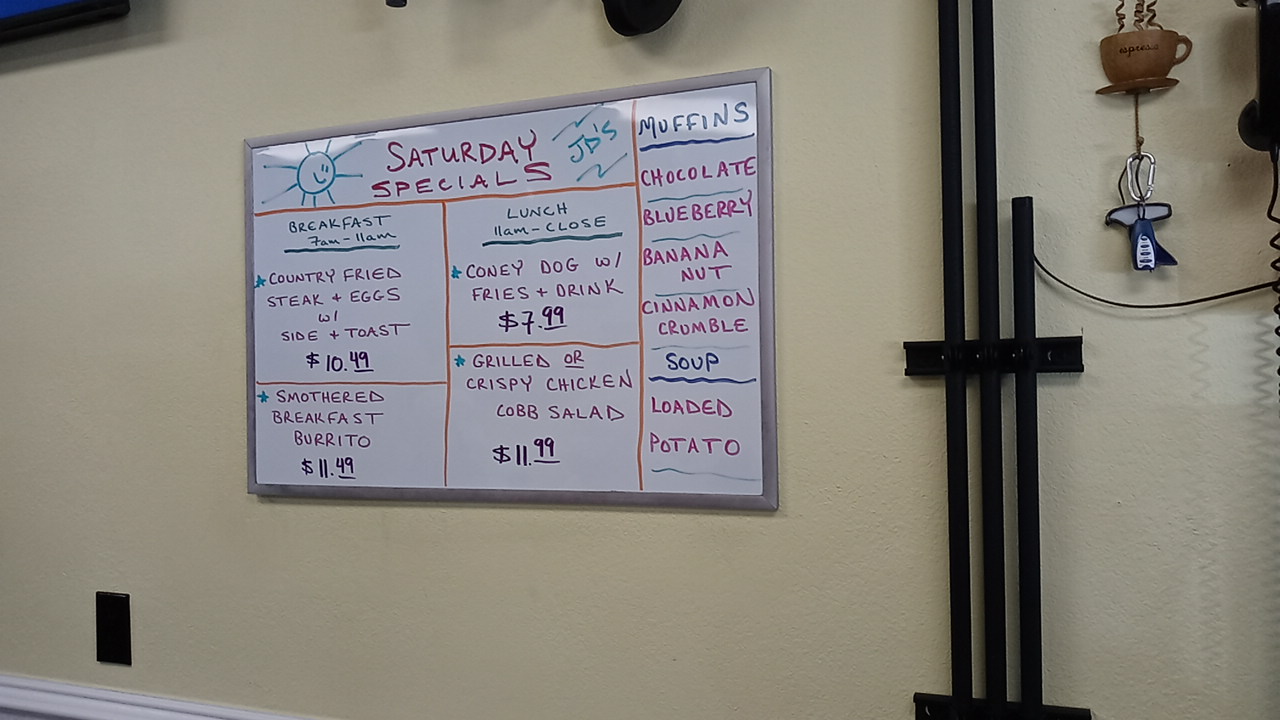 SATURDAY
SPECIALS
JD'S
BREAKFAST
7am-11am
* COUNTRY FRIED
STEAK + EGGS
w/
SIDE + TOAST
$10.49
* SMOTHERED
BREAKFAST
BURRITO
$11.49
LUNCH
11am-CLOSE
* CONEY DOG w/
FRIES + DRINK
$7.99
* GRILLED OR
CRISPY CHICKEN
COBB SALAD
$11.99
MUFFINS
CHOCOLATE
BLUEBERRY
BANANA
NUT
CINNAMON
CRUMBLE
SOUP
LOADED
POTATO
espresso